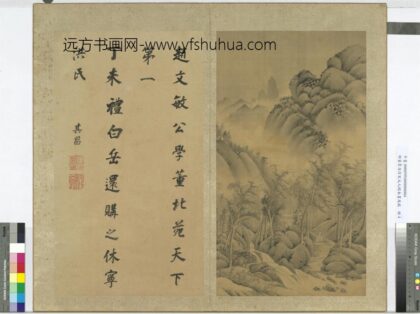 远方书画网-www.yfshuhua.com
趙文敏公學董北苑天下
第一
丁未禮白岳還購之休寧
洪氏
其昌